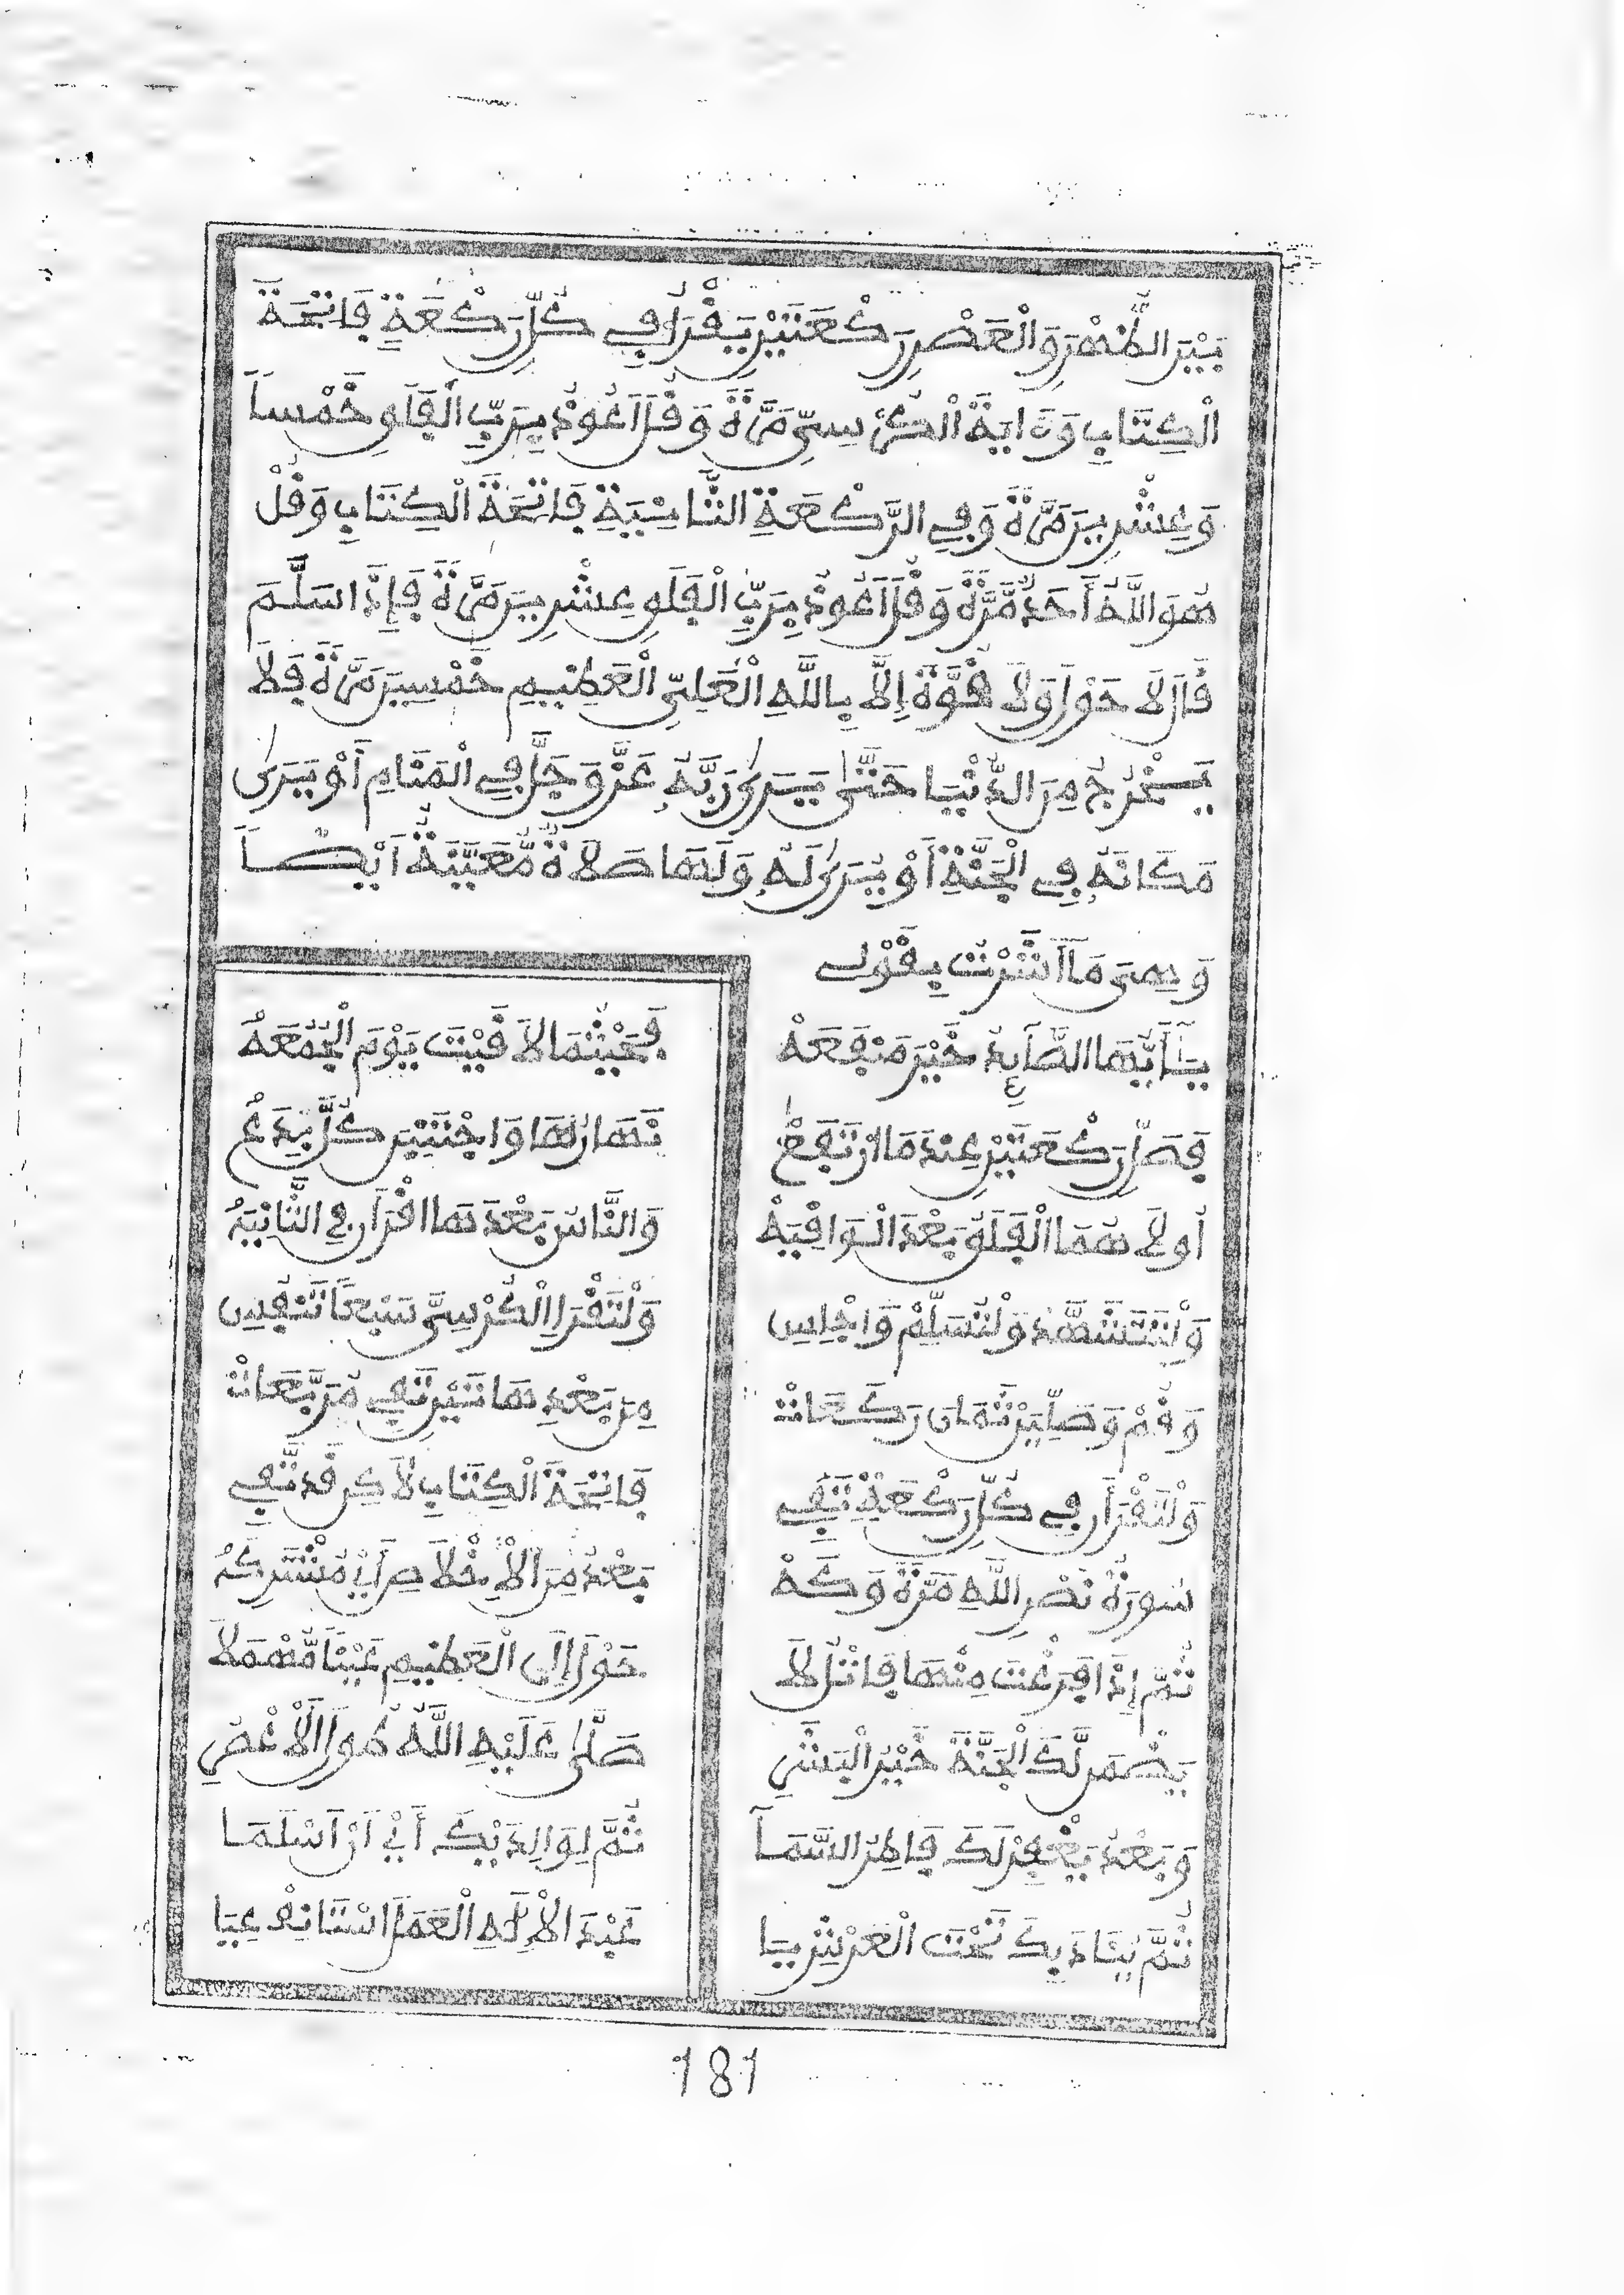 بَيْنَ الظُّهْرِ وَالْعَصْرِ رَكْعَتَيْنِ يَقْرَأُ فِي كُلِّ رَكْعَةٍ فَاتِحَةَ
الْكِتَابِ وَءَايَةَ الْكُرْسِيِّ مَرَّةً وَقُلَ اَعُوذُ بِرَبِّ الْفَلَقِ خَمْساً
وَعِشْرِينَ مَرَّةً وَفِي الرَّكْعَةِ الثَّانِيَةِ فَاتِحَةَ الْكِتَابِ وَقُلْ
هُوَ اللَّهُ أَحَدٌ مَّرَّةً وَقُلَ اَعُوذُ بِرَبِّ الْفَلَقِ عِشْرِينَ مَرَّةً فَإِذَا سَلَّمَ
قَالَ لَا حَوْلَ وَلَا قُوَّةَ إِلَّا بِاللَّهِ الْعَلِيِّ الْعَظِيمِ خَمْسِينَ مَرَّةً فَلَا
يَخْرُجُ مِنَ الدُّنْيَا حَتَّى يَرَى رَبَّهُ عَزَّ وَجَلَّ فِي الْمَنَامِ أَوْ يَرَى
مَكَانَهُ فِي الْجَنَّةِ أَوْ يُرَى لَهُ وَلَهَا صَلَاةٌ مُّعَيَّنَةٌ أَيْضاً
وَهِيَ مَا أَشَرْتُ بِقَوْلِي
يَا أَيُّهَا الصَّابِئُ خَيْرَ مَنْفَعَهْ
فَحَيْثُمَا لَاقَيْتَ يَوْمَ الْجُمُعَهْ
فَصَلِّ رَكْعَتَيْنِ عِنْدَ مَا ارْتَفَعْ
نَهَارُهَا وَاجْتَنِبَنْ كُلَّ بِدَعْ
أُولَاهُمَا الْفَلَقُ بَعْدَ الْوَافِيَهْ
وَالنَّاسُ بَعْدَهَا اقْرَأَنْ فِي الثَّانِيَهْ
وَلْتَتَشَهَّدْ وَلْتُسَلِّمْ وَاجْلِسِ
وَلْتَقْرَإِ الْكُرْسِيَّ سَبْعاً تَنْفِسِ
وَقُمْ وَصَلِّيَنْ ثَمَانِ رَكَعَاتْ
مِنْ بَعْدِ هَاتَيْنِ تَفِي مُرَبَّعَاتْ
وَلْتَقْرَأَنْ فِي كُلِّ رَكْعَةٍ تَفِي
فَاتِحَةَ الْكِتَابِ لَاكِنْ قَدْ تَفِي
سُورَةُ نَصْرِ اللَّهِ مَرَّةً وَكَهْ
بَعْدُ مِنَ الْإِخْلَاصِ أَيْ مُشْتَرِكَهْ
ثُمَّ إِذَا فَرَغْتَ مِنْهَا فَاتْلُ لَا
حَوْلَ إِلَى الْعَظِيمِ عَيْناً مُّهْمَلَا
يَضْمَن لَّكَ الْجَنَّةَ خَيْرُ الْبَشَرِ
صَلَّى عَلَيْهِ اللَّهُ طُولَ الْأَعْصُرِ
وَبَعْدُ يَغْفِرْ لَكَ فَاطِرُ السَّمَا
ثُمَّ لِوَالِدَيْكَ أَيْ أَنْ أَسْلَمَا
ثُمَّ يُنَادِيكَ تَحْتَ الْعَرْشِ يَا
عَبْدَ الْإِلَهِ الْعَمَلَ اسْتَانِفْ عِيَا
181